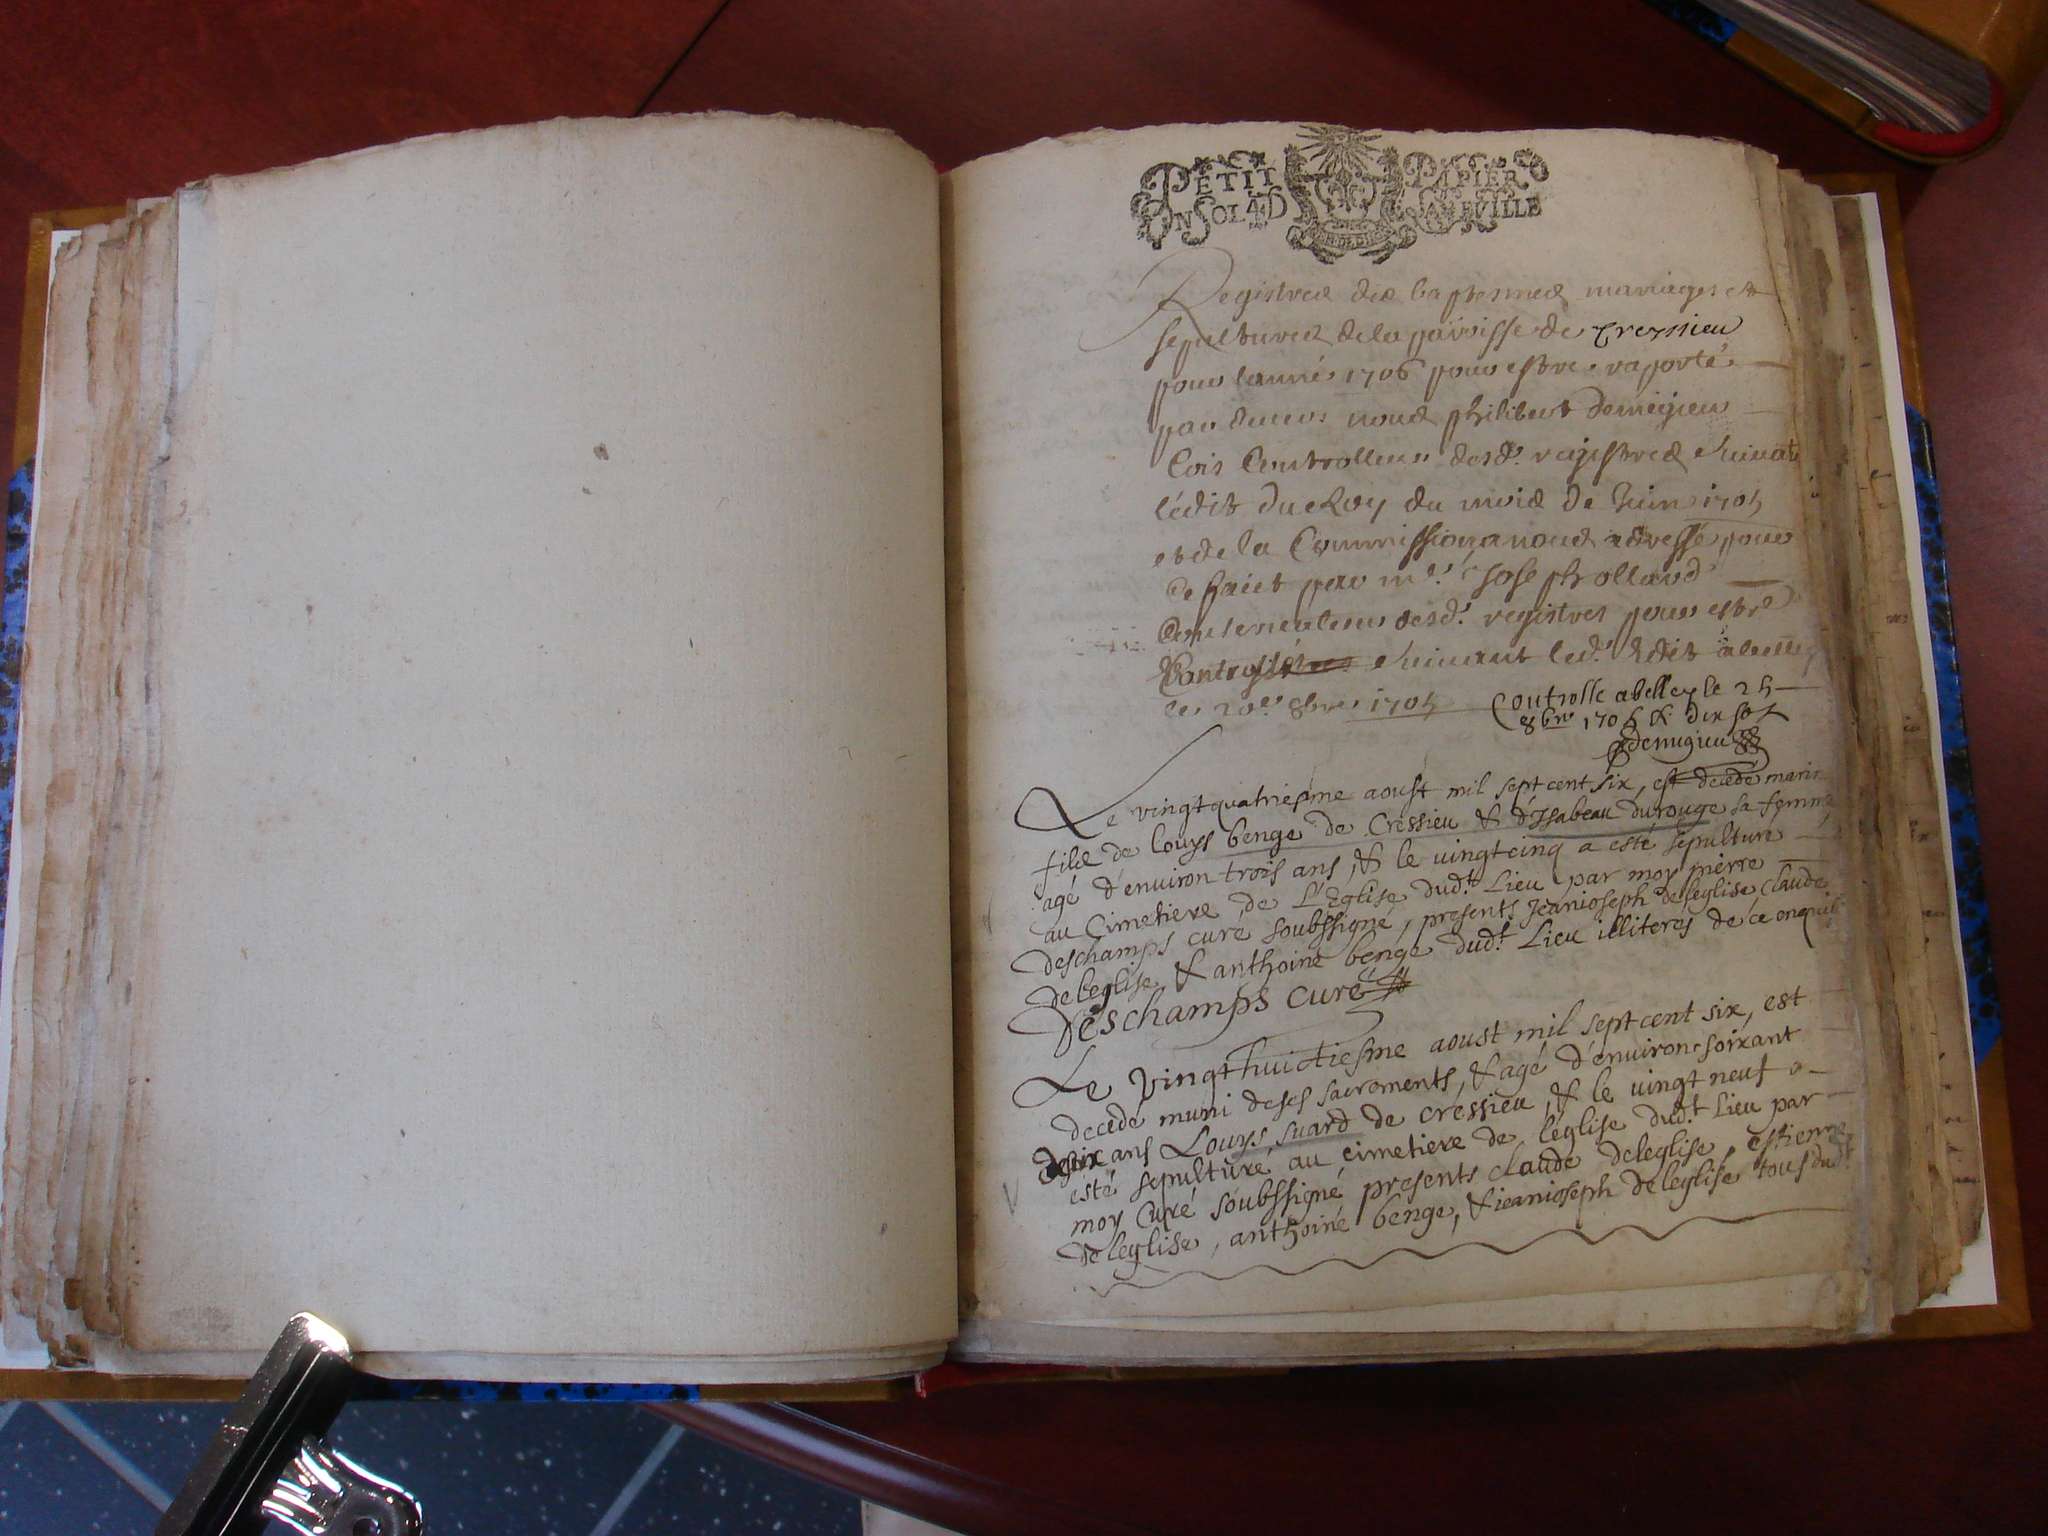 PETIT PAPIER
UN SOL 4D
GEN DE DIJON
Registres des baptesmes mariages et
sepultures de la parroisse de Cressieu
pour lanné 1706 pour estre raporté
par devers nous philibert demigieu
Controlleur desd. registres suivat
lédit du Roy du mois de Juin 1705
et de la Commission a nous adressé pour
ce faict par mre. Joseph rolland
desd. registres pour estre
suivant led. Edit a belley
le 20e 8bre 1705 Controlle a belley le 25
8bre 1705 & dix sol
demigieu
Le vingtquatriesme aoust mil sept cent six, est decedé marin
filz de louys benge de Cressieu & d'Isabeau durouge sa femme
agé d'environ trois ans, & le vingtcinq a esté sepulturé
au Cimetiere de L'Eglise dud.t Lieu par moy pierre
deschamps curé soubssigné, presents Jeanioseph deleglise claude
deleglise & anthoine benge dud.t Lieu illiteres de ce enquis
Deschamps curé
Le vingthuictiesme aoust mil sept cent six, est
decedé muni de ses sacrements, & agé d'environ soixant
dix ans Louys suard de cressieu, & le vingt neuf a
esté sepulturé au cimetiere de l'église dud.t Lieu par
moy curé soubssigné presents claude deleglise, estienne
deleglise, anthoine benge, & jeanioseph deleglise tous dud.t